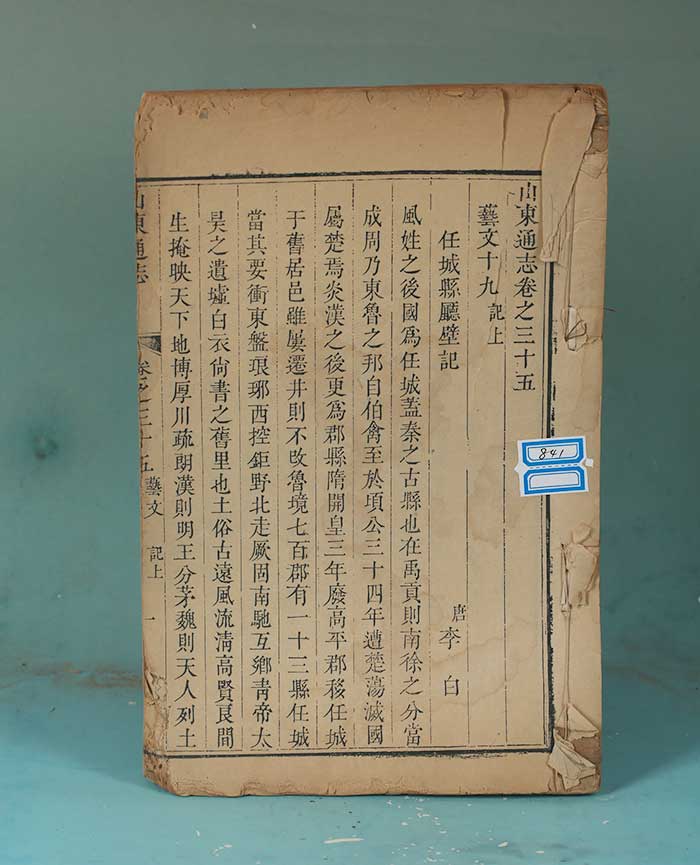 山東通志卷之三十五
藝文十九 記上
任城縣廳壁記
唐 李白
風姓之後國為任城蓋秦之古縣也在禹貢則南徐之分當
成周乃東魯之邦自伯禽至於頃公三十四年遭楚蕩滅國
屬楚焉炎漢之後更為郡縣隋開皇三年廢高平郡移任城
于舊居邑雖屢遷井則不改魯境七百郡有一十三縣任城
當其要衝東盤琅琊西控鉅野北走厥固南馳互鄉青帝太
昊之遺墟白衣尚書之舊里也土俗古遠風流清高賢良間
生掩映天下地博厚川疏朗漢則明王分茅魏則天人列土
山東通志
卷之三十五 藝文 記上 一
841